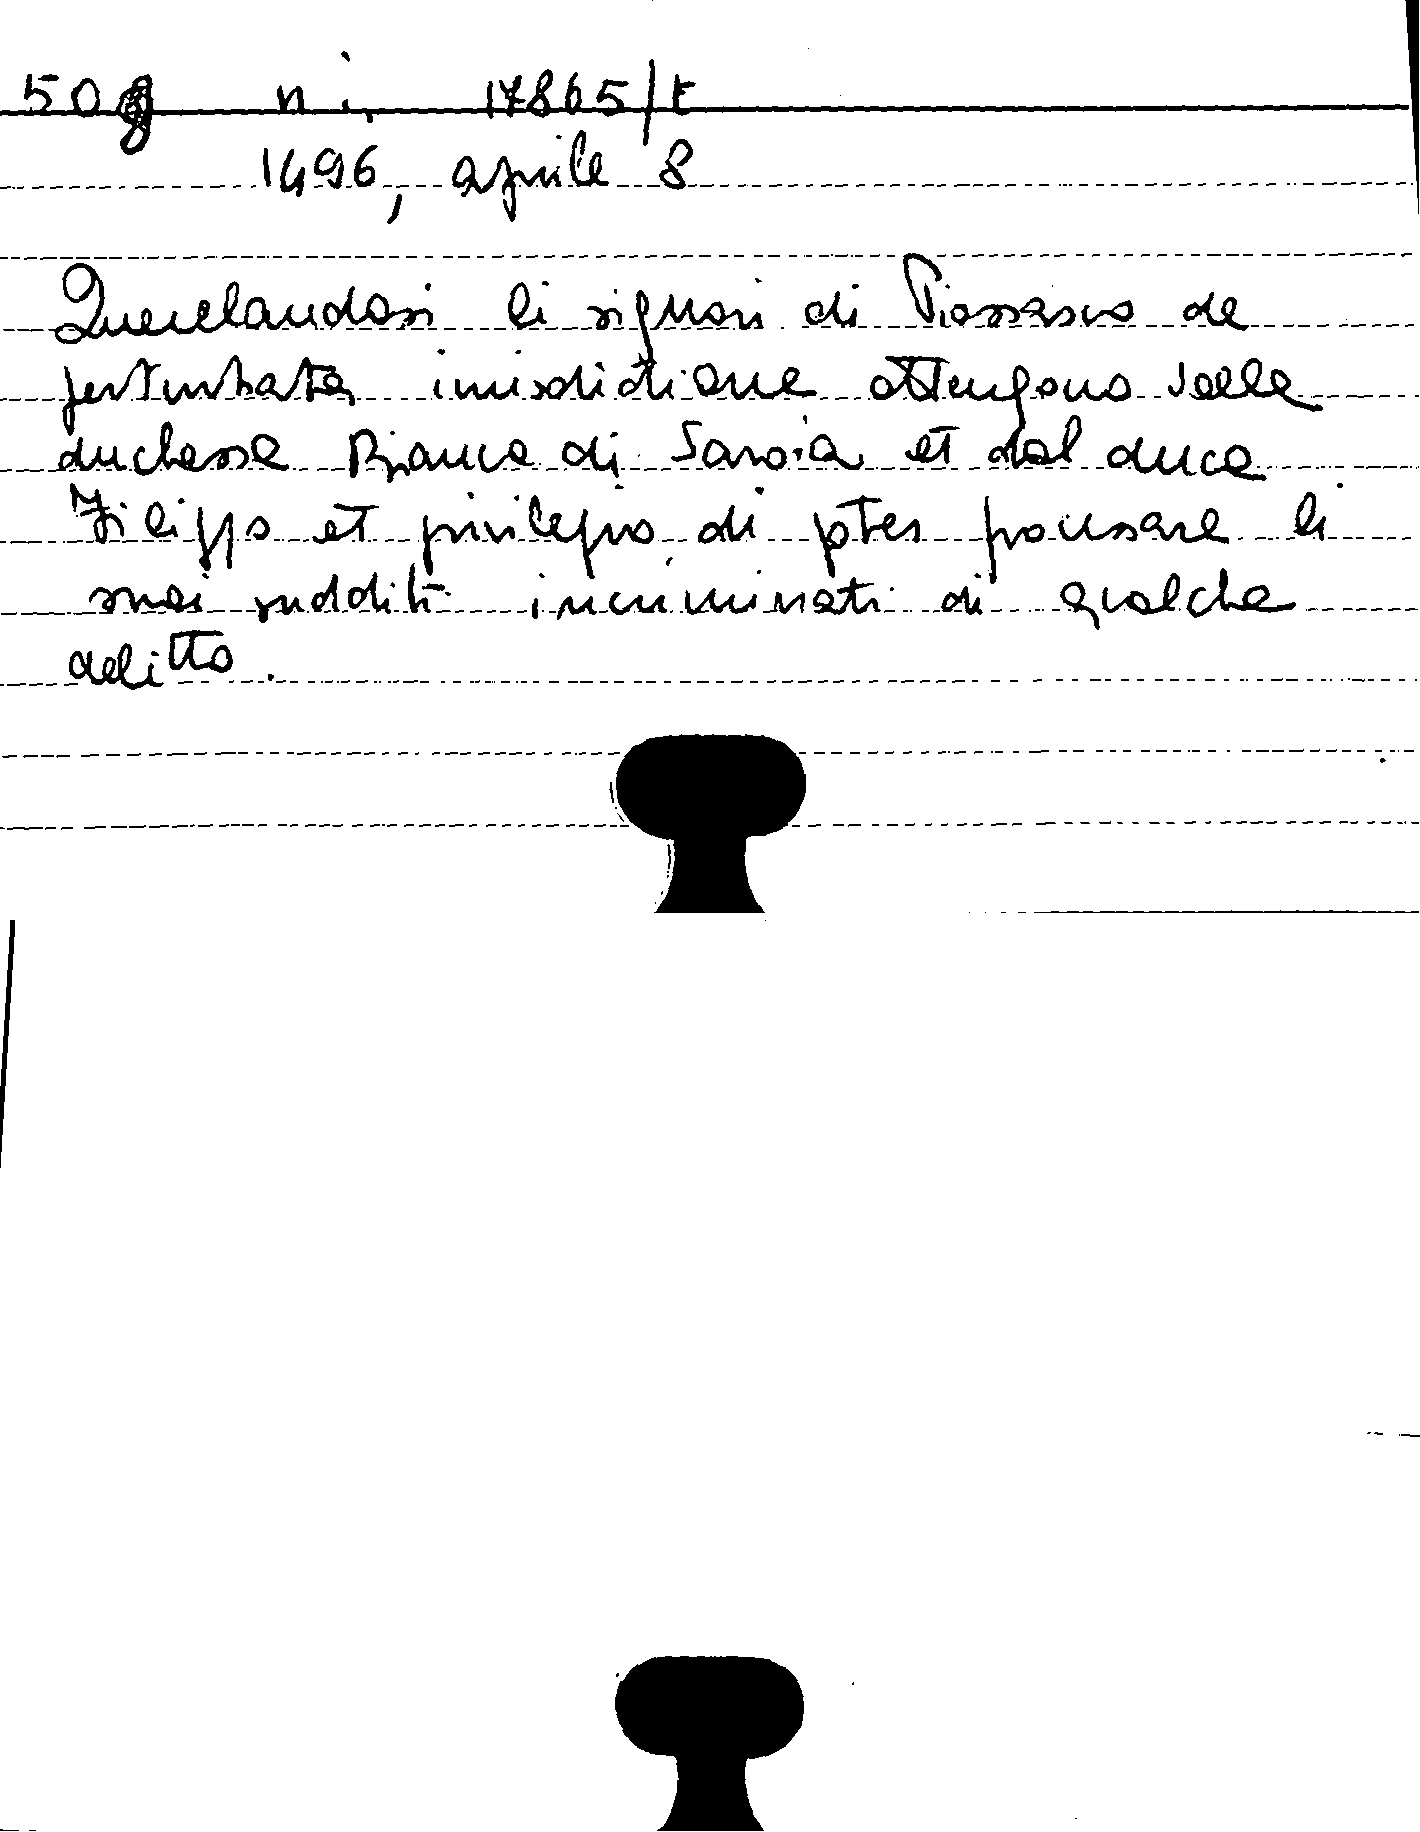 50 n. i. 17865/t
1496, aprile 8
Querelandosi li signori di Piossasco de
perturbata iurisditione ottengono dalla
duchessa Bianca di Savoia et dal duca
Filippo et privilegio di poter processare li
suoi sudditi incriminati di qualche
delitto.